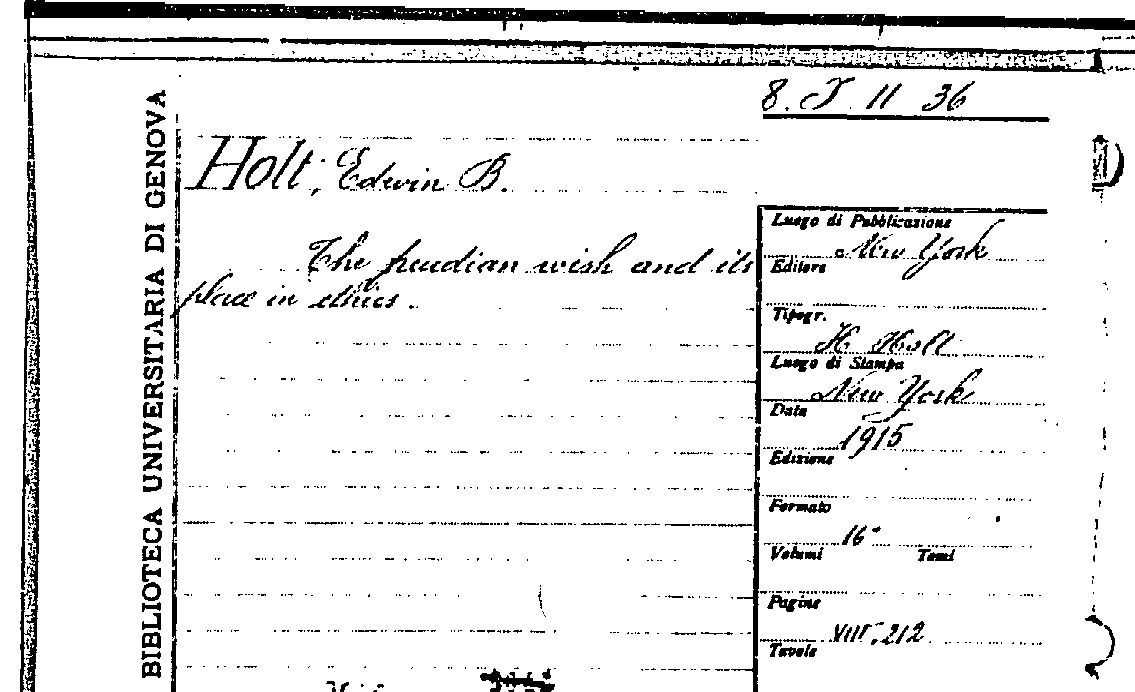 8. T. 11 36
BIBLIOTECA UNIVERSITARIA DI GENOVA
Holt, Edwin B.
The freudian wish and its
place in ethics.
Luogo di Pubblicazione
New York
Editore
Tipogr.
H. Holt
Luogo di Stampa
New York
Data
1915
Edizione
Formato
16°
Volumi Tomi
Pagine
VIII, 212
Tavole